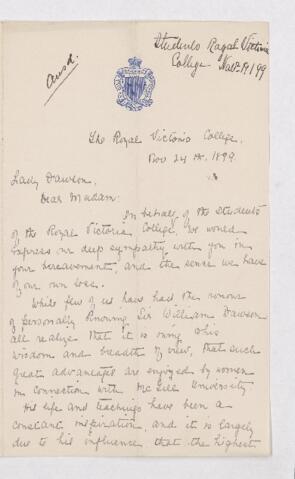 Ansd.
Students Royal Victoria
College Nov 24/99
The Royal Victoria College.
Nov 24th. 1899.
Lady Dawson,
Dear Madam:
In behalf of the Students
of the Royal Victoria College, we would
express our deep sympathy with you in
your bereavement, and the sense we have
of our own loss.
While few of us have had the honour
of personally knowing Sir William Dawson
all realize that it is owing to his
wisdom and breadth of view, that such
great advantages are enjoyed by women
in connection with McGill University
His life and teachings have been a
constant inspiration, and it is largely
due to his influence that the highest